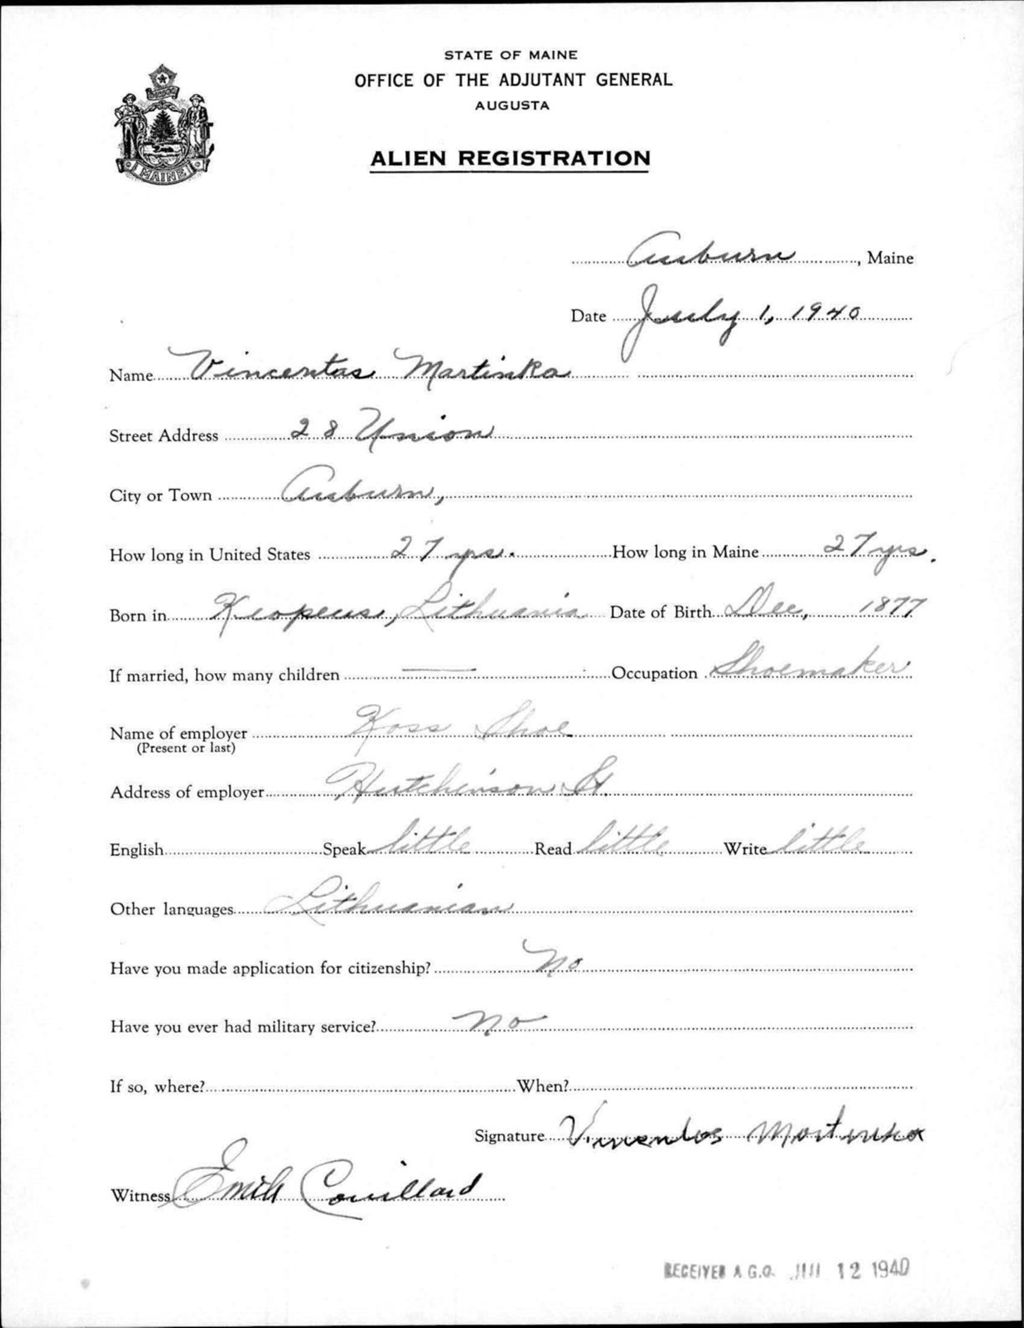 STATE OF MAINE
OFFICE OF THE ADJUTANT GENERAL
AUGUSTA
MAINE
ALIEN REGISTRATION
Auburn, Maine
Date July 1, 1940
Name Vincentas Martinka
Street Address 28 Union
City or Town Auburn,
How long in United States 27 yrs. How long in Maine 27 yrs.
Born in Keopeus, Lithuania Date of Birth Dec, 1877
If married, how many children — Occupation Shoemaker
Name of employer Koss Shoe
(Present or last)
Address of employer Hutchinson St.
English Speak little Read little Write little
Other languages Lithuanian
Have you made application for citizenship? No
Have you ever had military service? No
If so, where? When?
Signature Vincentos Martinka
Witness Emile Couillard
RECEIVED A.G.O. 12 1940